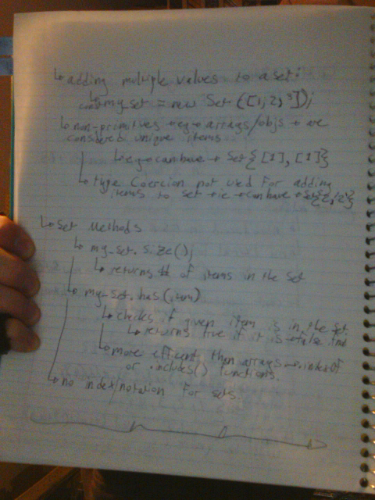 ↳ adding multiple values to a set:
↳ const my-set = new Set([1,2,3]);
↳ non-primitives → eg → arrays/objs → are
considered unique items
↳ eg → can have → Set{[1],[1]}
↳ type Coercion not used for adding
items to set → ie → can have → Set{2,'2'}
↳ Set Methods
↳ my-set.size();
↳ returns # of items in the set
↳ my-set.has(item)
↳ checks if given item is in the set
↳ returns true if it is → false
↳ more efficient than arrays → .indexOf
or .includes() functions.
↳ no index/notation for sets